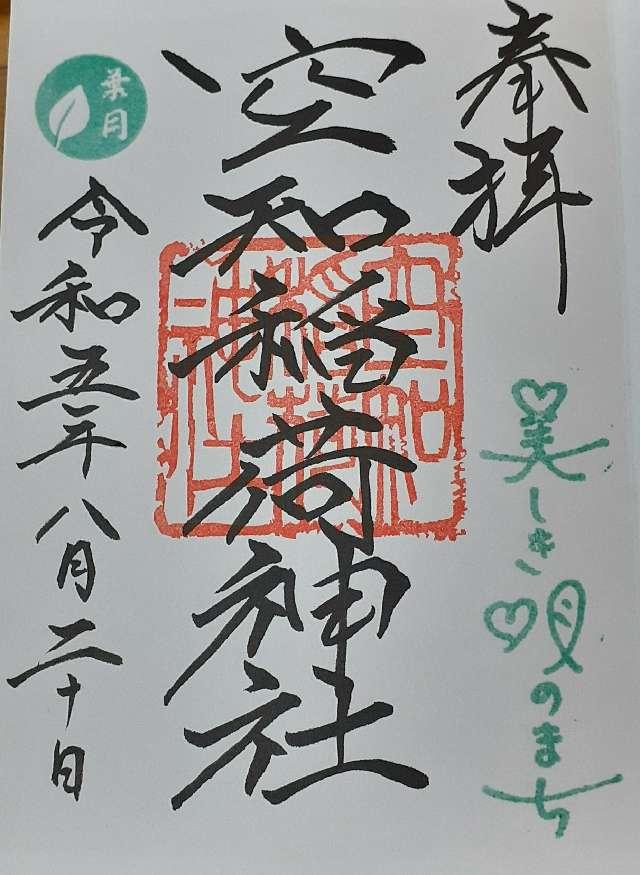 奉拝
美しき唄のまち
空知稲荷神社
空知稲荷神社
葉月
令和五年八月二十日